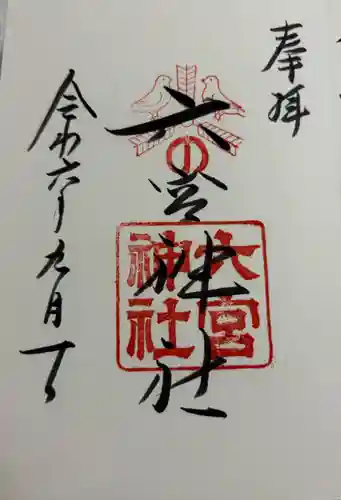 奉拝
六宮神社
六宮神社
令和六年九月一日